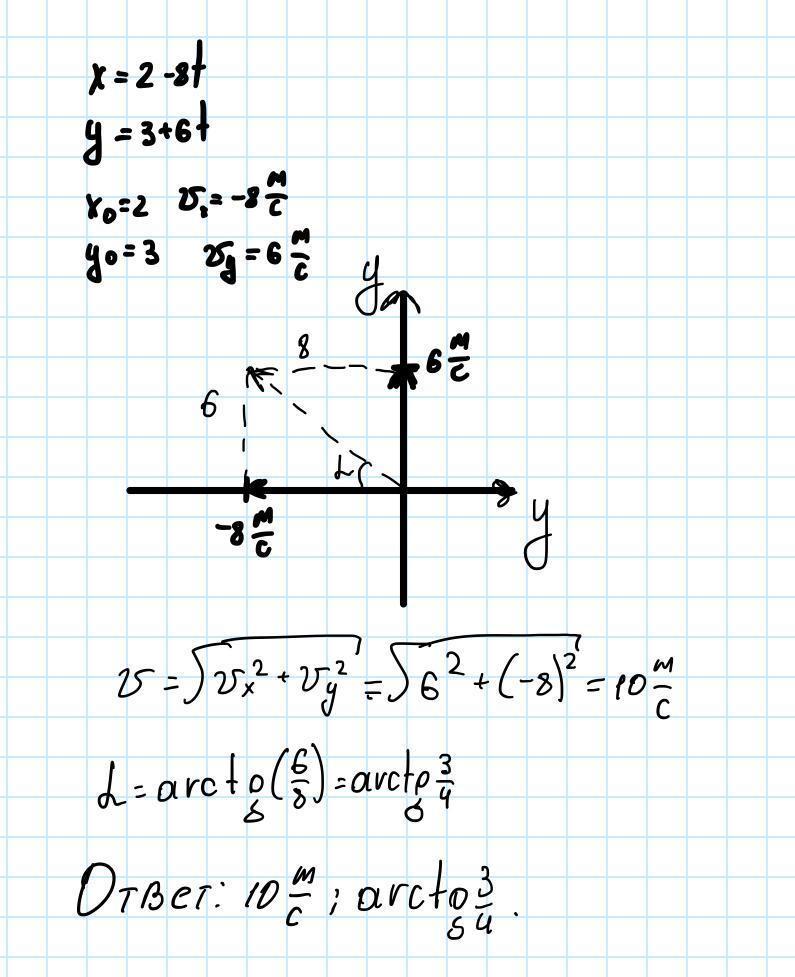 x = 2 - 8t
y = 3 + 6t
x₀ = 2 𝑣ₓ = -8 м/с
y₀ = 3 𝑣y = 6 м/с
y
8
6 м/с
6
α
-8 м/с
y
𝑣 = √(𝑣ₓ² + 𝑣y²) = √(6² + (-8)²) = 10 м/с
α = arctg(6/8) = arctg 3/4
Ответ: 10 м/с ; arctg 3/4 .